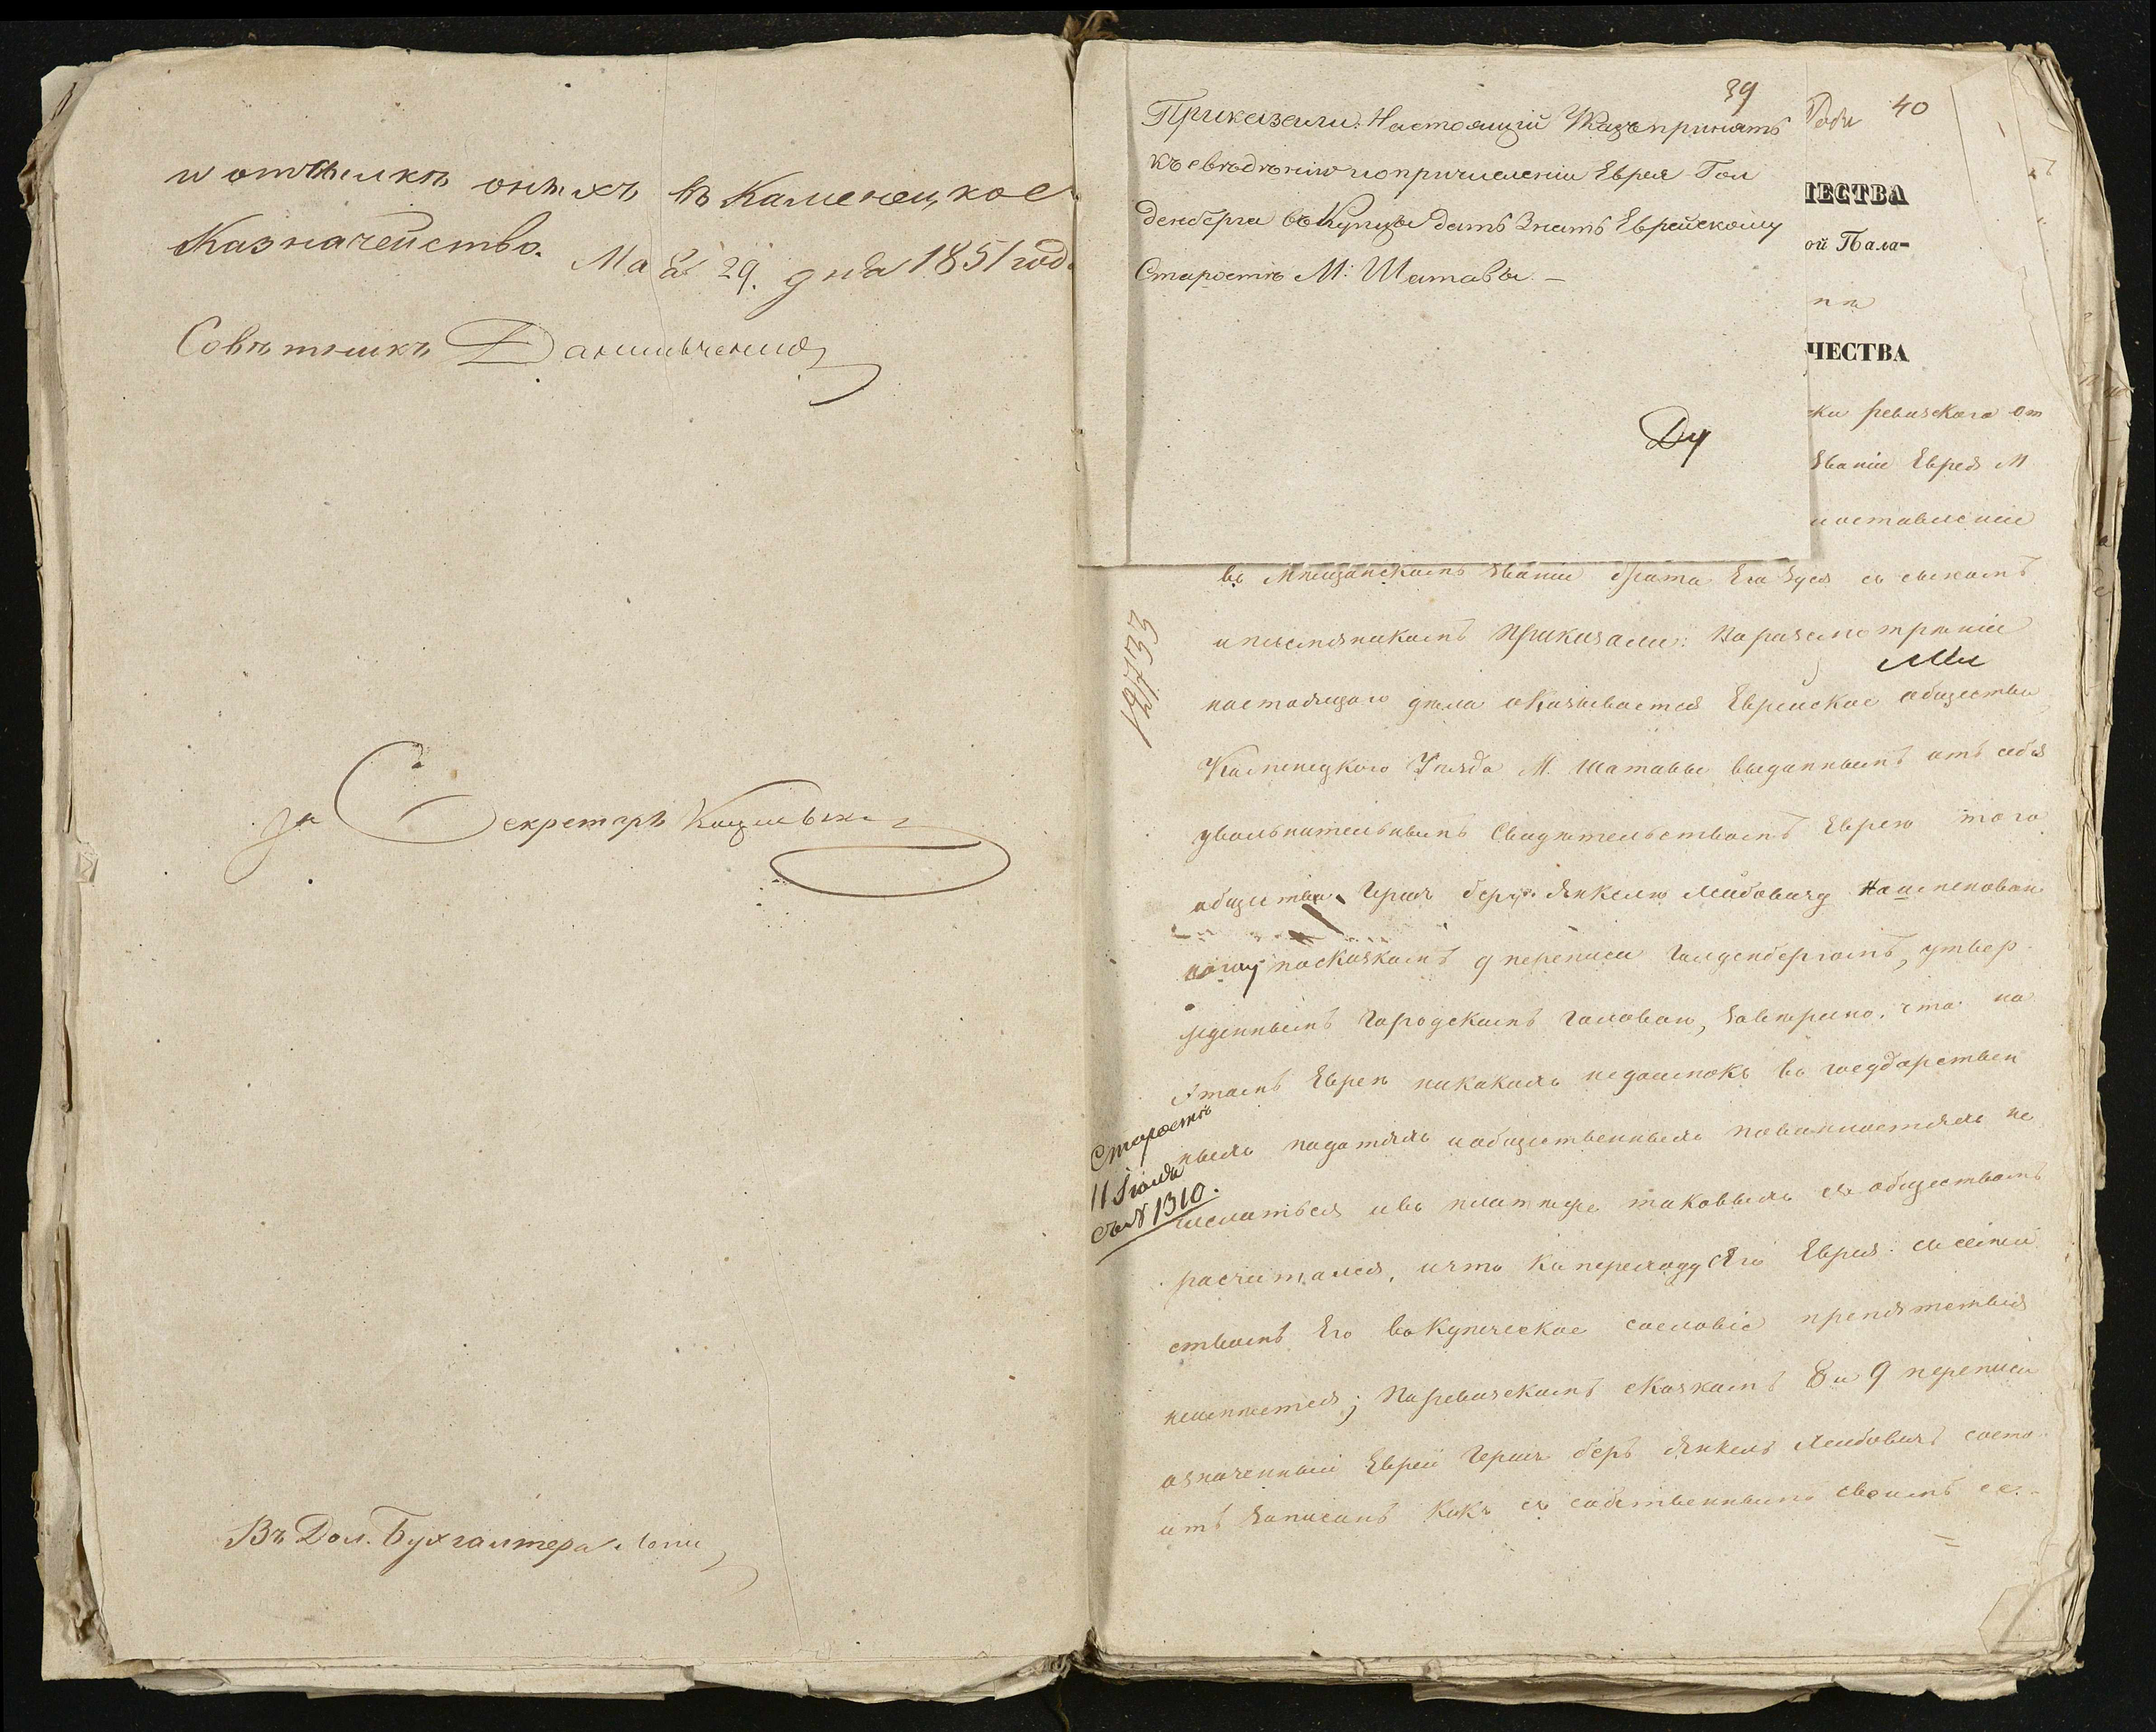 и отсылкѣ оныхъ въ Каменецкое
Казначейство. Мая 29. дня 1851 год.
Совѣтникъ
за Секретаря
Въ Дол. Бухгалтера
39
Приказали: Настоящій Указъ принять
къ свѣдѣнію и о причисленіи Еврея Гол
денберга въ Купцы дать знать Еврейскому
Старостѣ М: Шатавы. —
40
ЧЕСТВА
ой Пала=
ЧЕСТВА
ки ревизскаго от
званіе Еврея М
и оставленіи
въ Мѣщанскомъ званіи брата Его Зуся съ сыномъ
и племянникомъ Приказали: По разсмотрѣніи
настоящаго дѣла оказывается Еврейское общество
Каменецкого Уѣзда М. Шатавы выданнымъ отъ себя
увольнительнымъ свидѣтельствомъ Еврею того
общества Герш Беру Янкелю Лейбовичу Наименован
ному по сказкамъ 9 переписи Голденбергомъ, утвер
жденнымъ Городскимъ Головою, завѣрено, что на
этомъ Евреѣ никакихъ недоимокъ въ государствен
ныхъ податяхъ и общественныхъ повинностяхъ не
числиться и въ платежѣ таковыхъ съ обществомъ
расчитался, и что къ переходу Его Еврея съ семей
ствомъ Его въ Купеческое сословіе препятствія
неимѣется; По ревизскимъ сказкамъ 8 и 9 переписи
означенный Еврей Герш Беръ Янкель Лейбовичъ состо
итъ записанъ какъ съ собственнымъ своимъ се=
Старостѣ
11 Іюля
за № 1310.